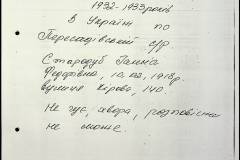 1932-1933 років
В Україні по
Пересадівській с/р.
Стародуб Ганна
Федорівна, 10.03.1918р.
вулиця Кірова, 140.
Не чує, хвора, розповісти
не може.